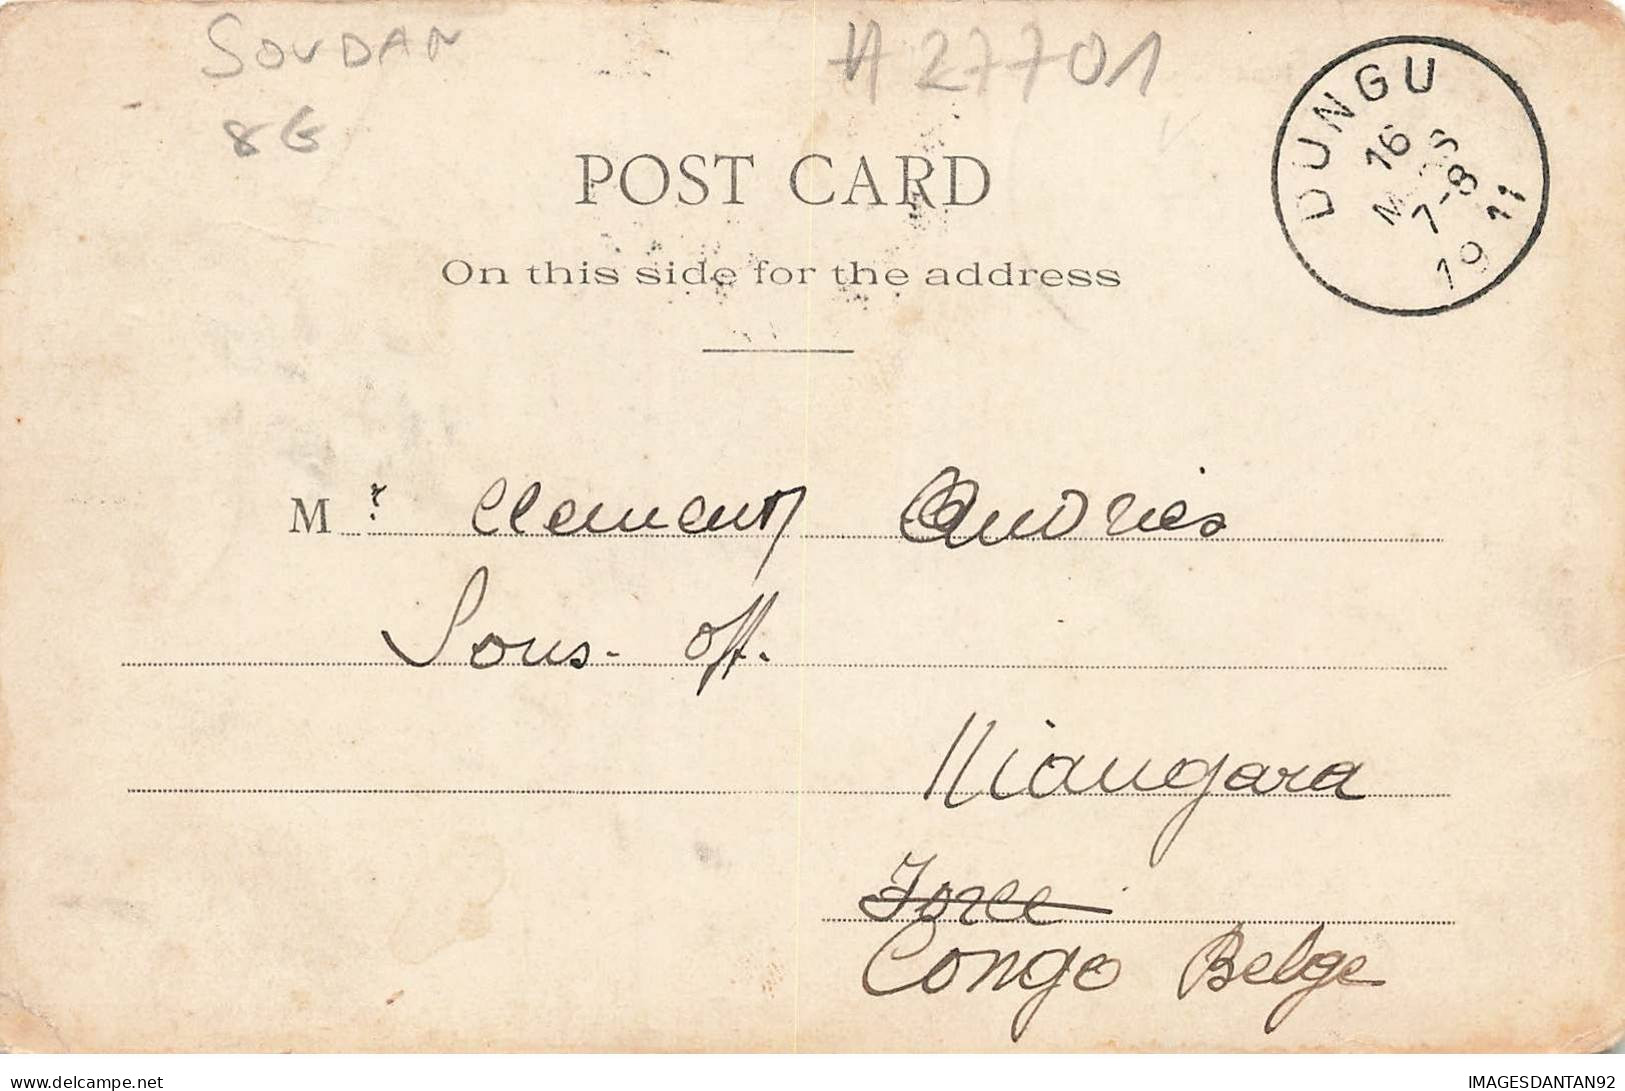 SOUDAN
8G
# 27701
DUNGU
16
7-8
19 11
POST CARD
On this side for the address
Mr Clement Andries
Sous-off.
Niangara
Force
Congo Belge
delcampe.net
IMAGESDANTAN92